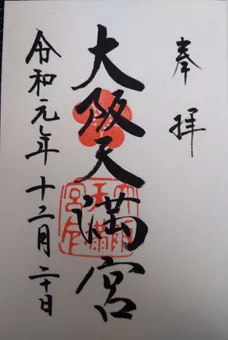 奉拝
大阪天満宮
令和元年十二月二十日